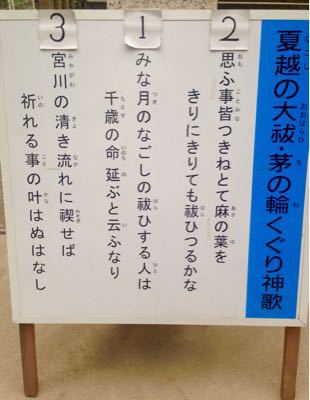 夏越の大祓・茅の輪くぐり神歌
2
思ふ事皆つきねとて麻の葉を
きりにきりても祓ひつるかな
1
みな月のなごしの祓ひする人は
千歳の命 延ぶと云ふなり
3
宮川の清き流れに禊せば
祈れる事の叶はぬはなし